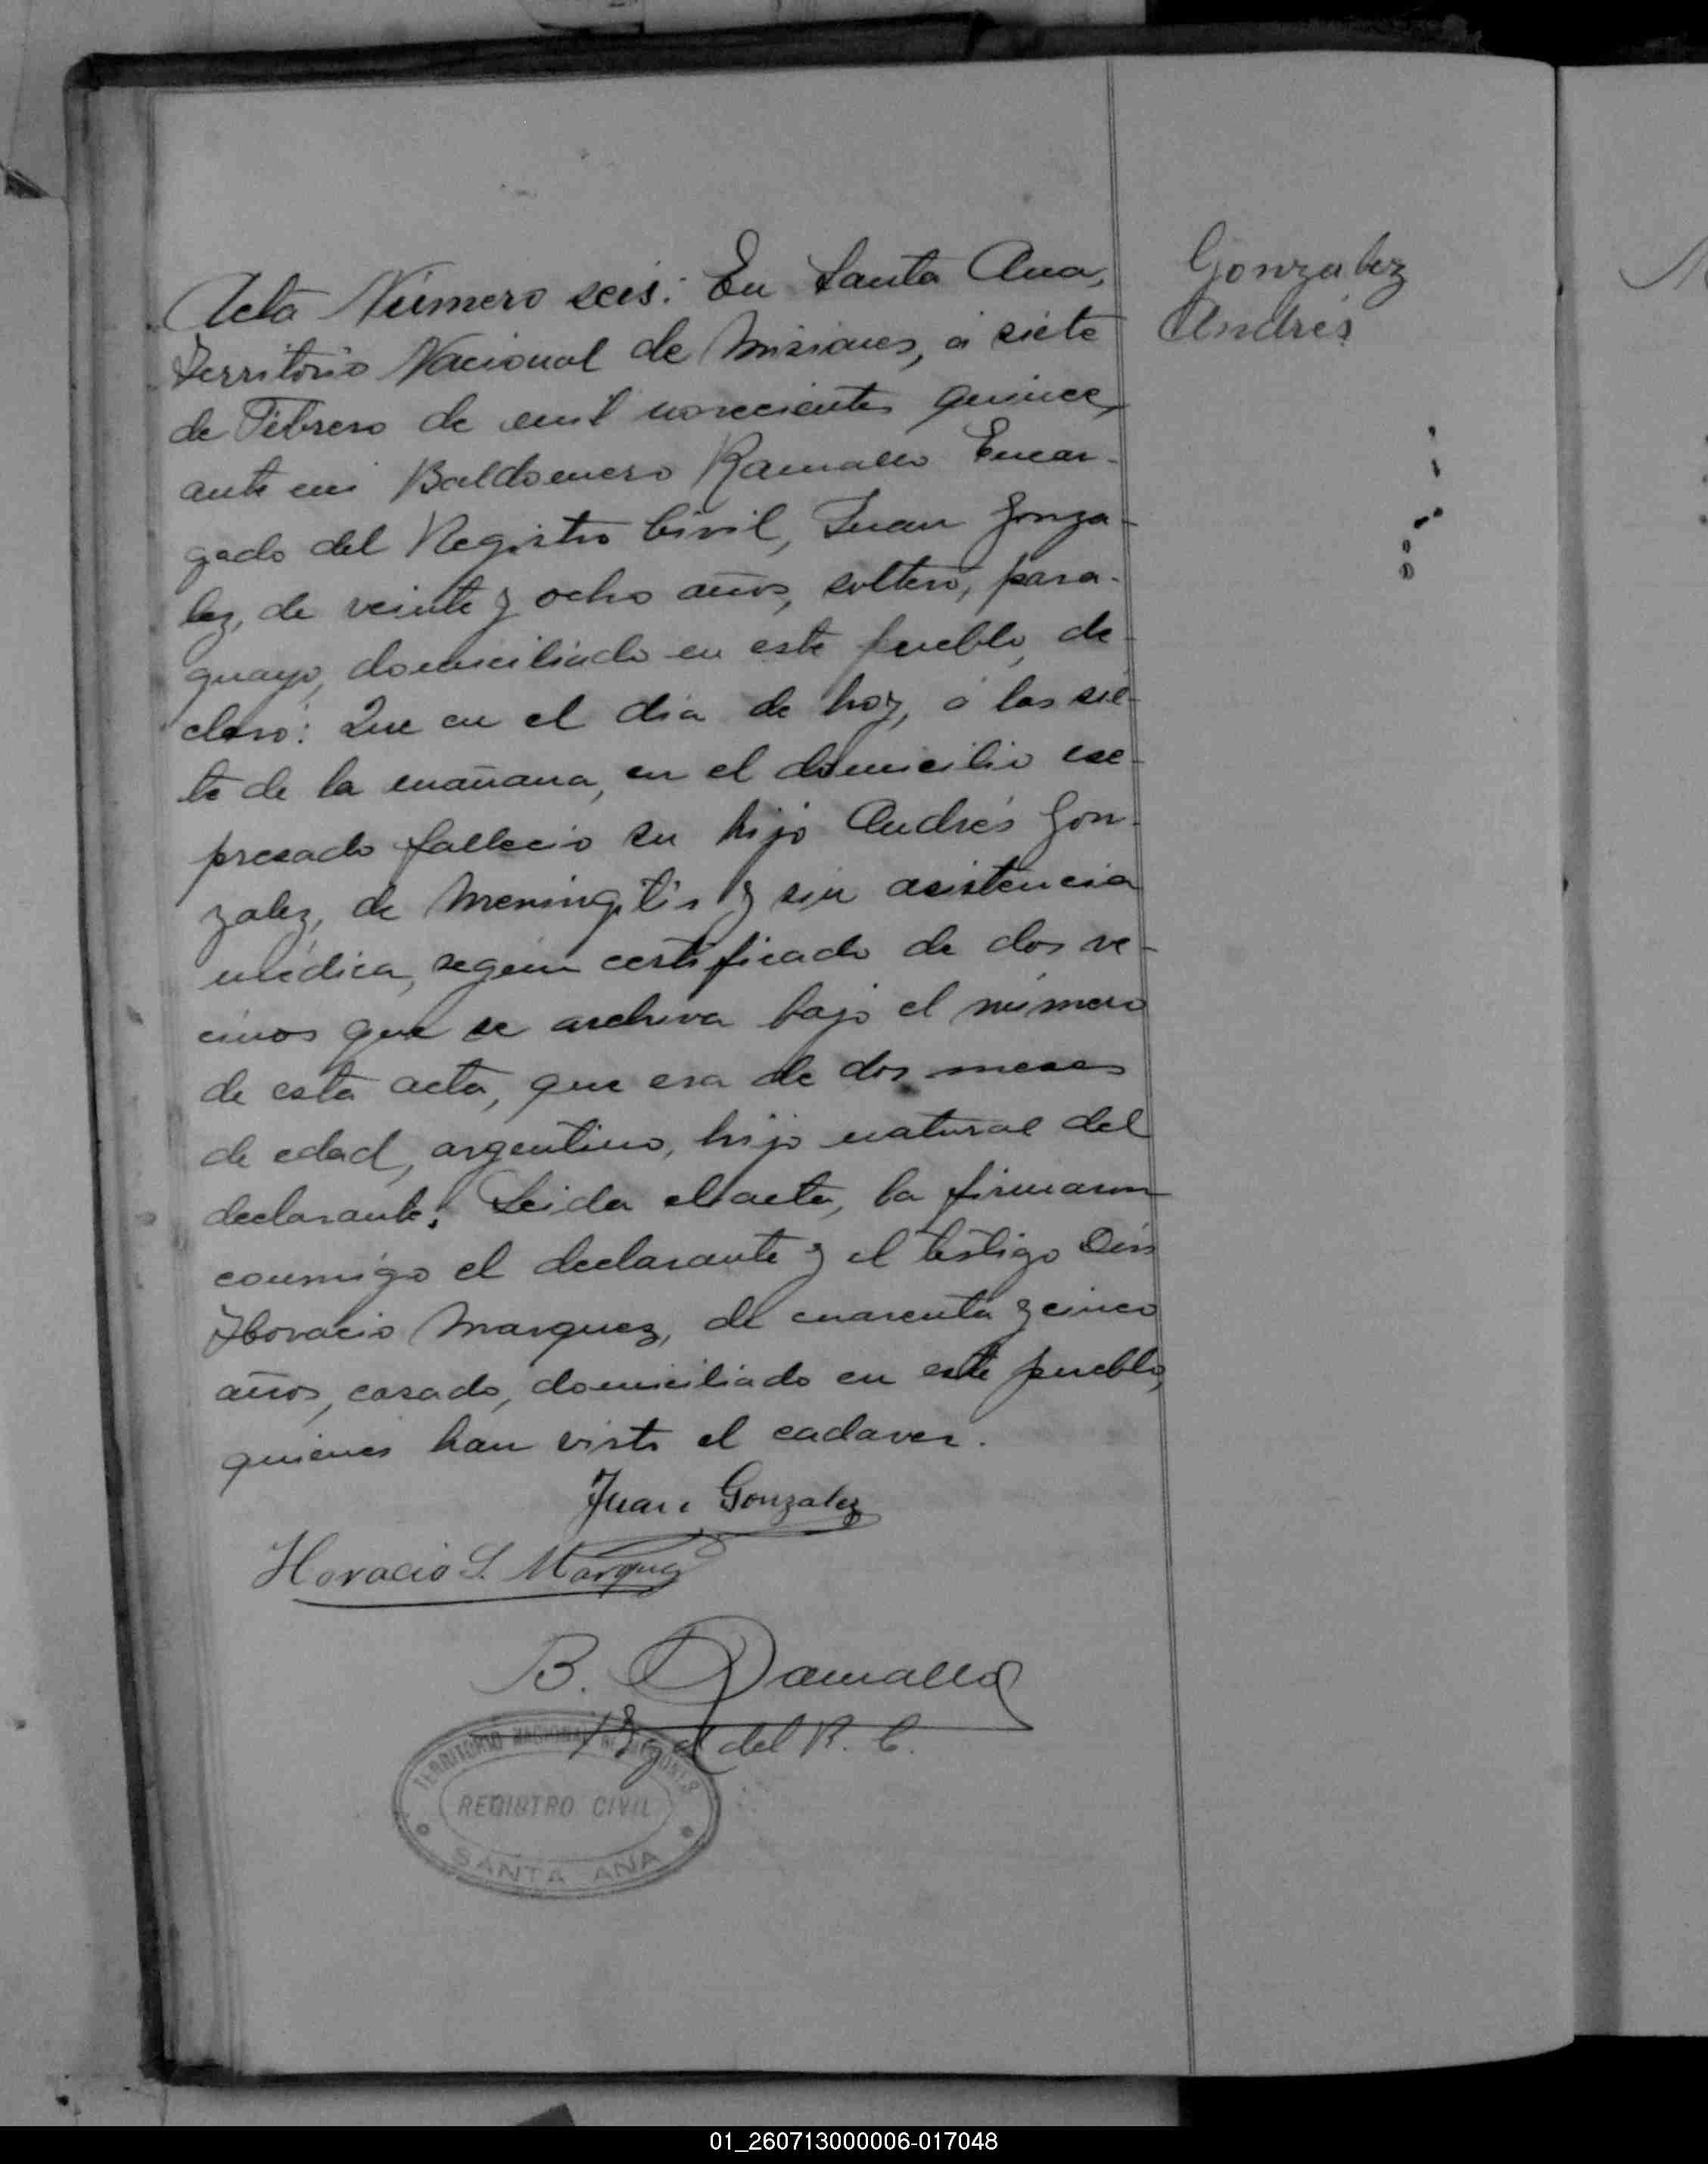 Gonzalez
Andrés
Acta Número seis: En Santa Ana,
Territorio Nacional de Misiones, á siete
de Febrero de mil novecientos quince,
ante mi Baldomero Ramallo Encar-
gado del Registro Civil, Juan Gonza-
lez, de veinte y ocho años, soltero, para-
guayo, domiciliado en este pueblo, de-
claró: Que en el dia de hoy, á las sie-
te de la mañana, en el domicilio ese-
presado falleció su hijo Andrés Gon-
zalez, de Meningitis y sin asistencia
médica, según certificado de dos ve-
cinos que se archiva bajo el número
de esta acta, que era de dos meses
de edad, argentino, hijo natural del
declarante. Leida el acta, la firmaron
conmigo el declarante y el testigo Don
Horacio Marquez, de cuarenta y cinco
años, casado, domiciliado en este pueblo,
quienes han visto el cadaver.
Juan Gonzalez
Horacio S. Marquez
B. Ramallo
del R. C.
TERRITORIO NACIONAL DE MISIONES
REGISTRO CIVIL
SANTA ANA
01_260713000006-017048